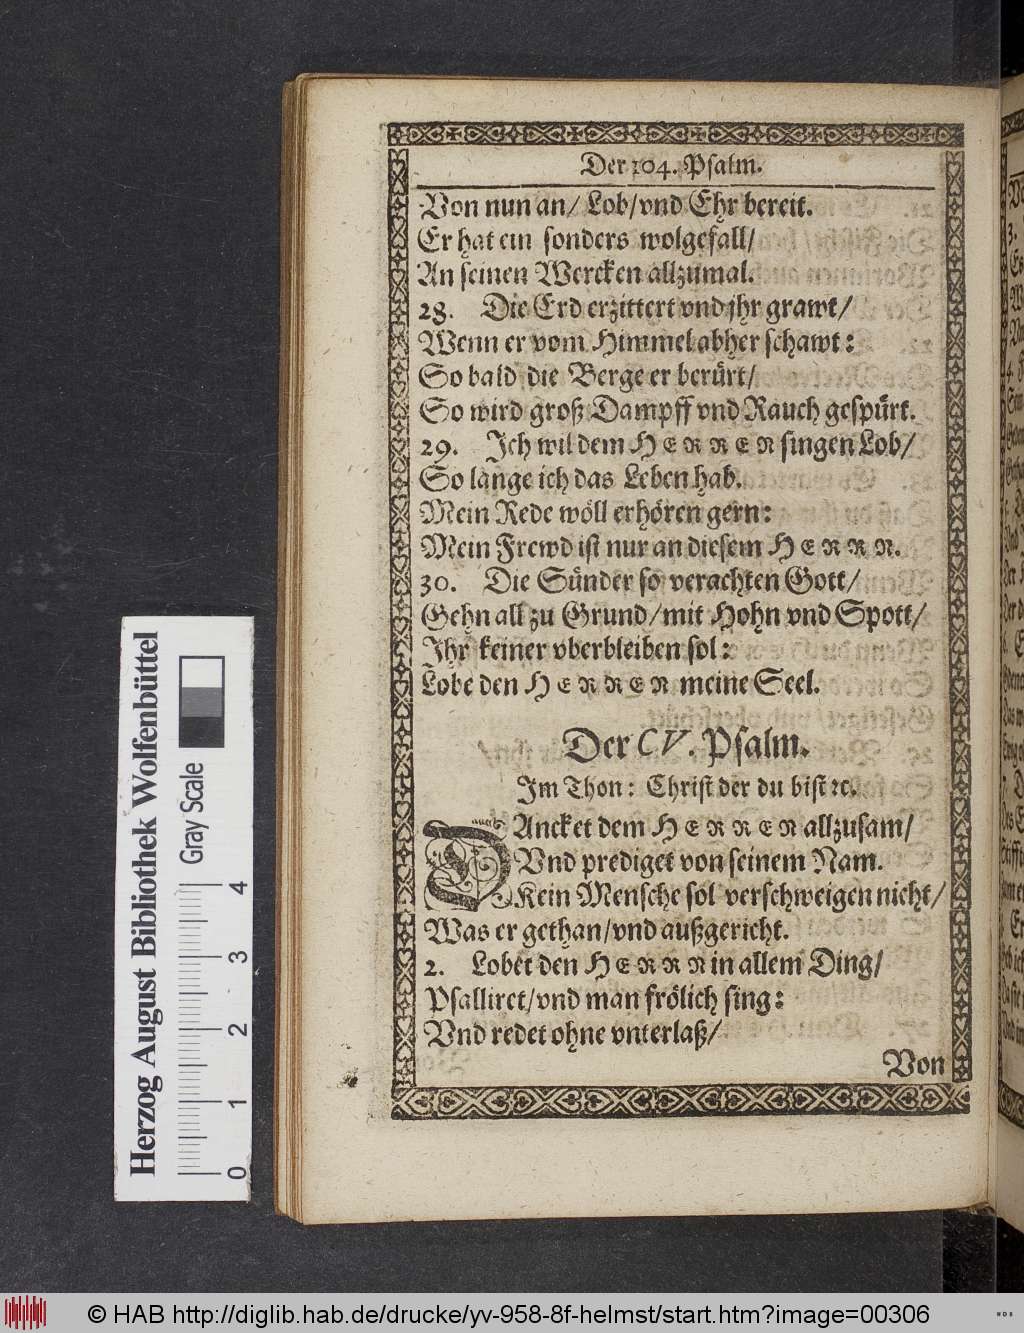 Der 104. Psalm.
Von nun an/ Lob/vnd Ehr bereit.
Er hat ein sonders wolgefall/
An seinen Wercken allzumal.
28. Die Erd erzittert vnd jhr grawt/
Wenn er vom Himmel abher schawt:
So bald die Berge er berürt/
So wird groß Dampff vnd Rauch gespürt.
29. Ich wil dem HERREN singen Lob/
So lange ich das Leben hab.
Mein Rede wöll erhören gern:
Mein Frewd ist nur an diesem HERRN.
30. Die Sünder so verachten Gott/
Gehn all zu Grund/mit Hohn vnd Spott/
Ihr keiner vberbleiben sol:
Lobe den HERREN meine Seel.
Der CV. Psalm.
Im Thon: Christ der du bist ꝛc.
DAncket dem HERREN allzusam/
Vnd prediget von seinem Nam.
Kein Mensche sol verschweigen nicht/
Was er gethan/vnd außgericht.
2. Lobet den HERRN in allem Ding/
Psalliret/vnd man frölich sing:
Vnd redet ohne vnterlaß/
Von
Herzog August Bibliothek Wolfenbüttel
Gray Scale
0 1 2 3 4
© HAB http://diglib.hab.de/drucke/yv-958-8f-helmst/start.htm?image=00306